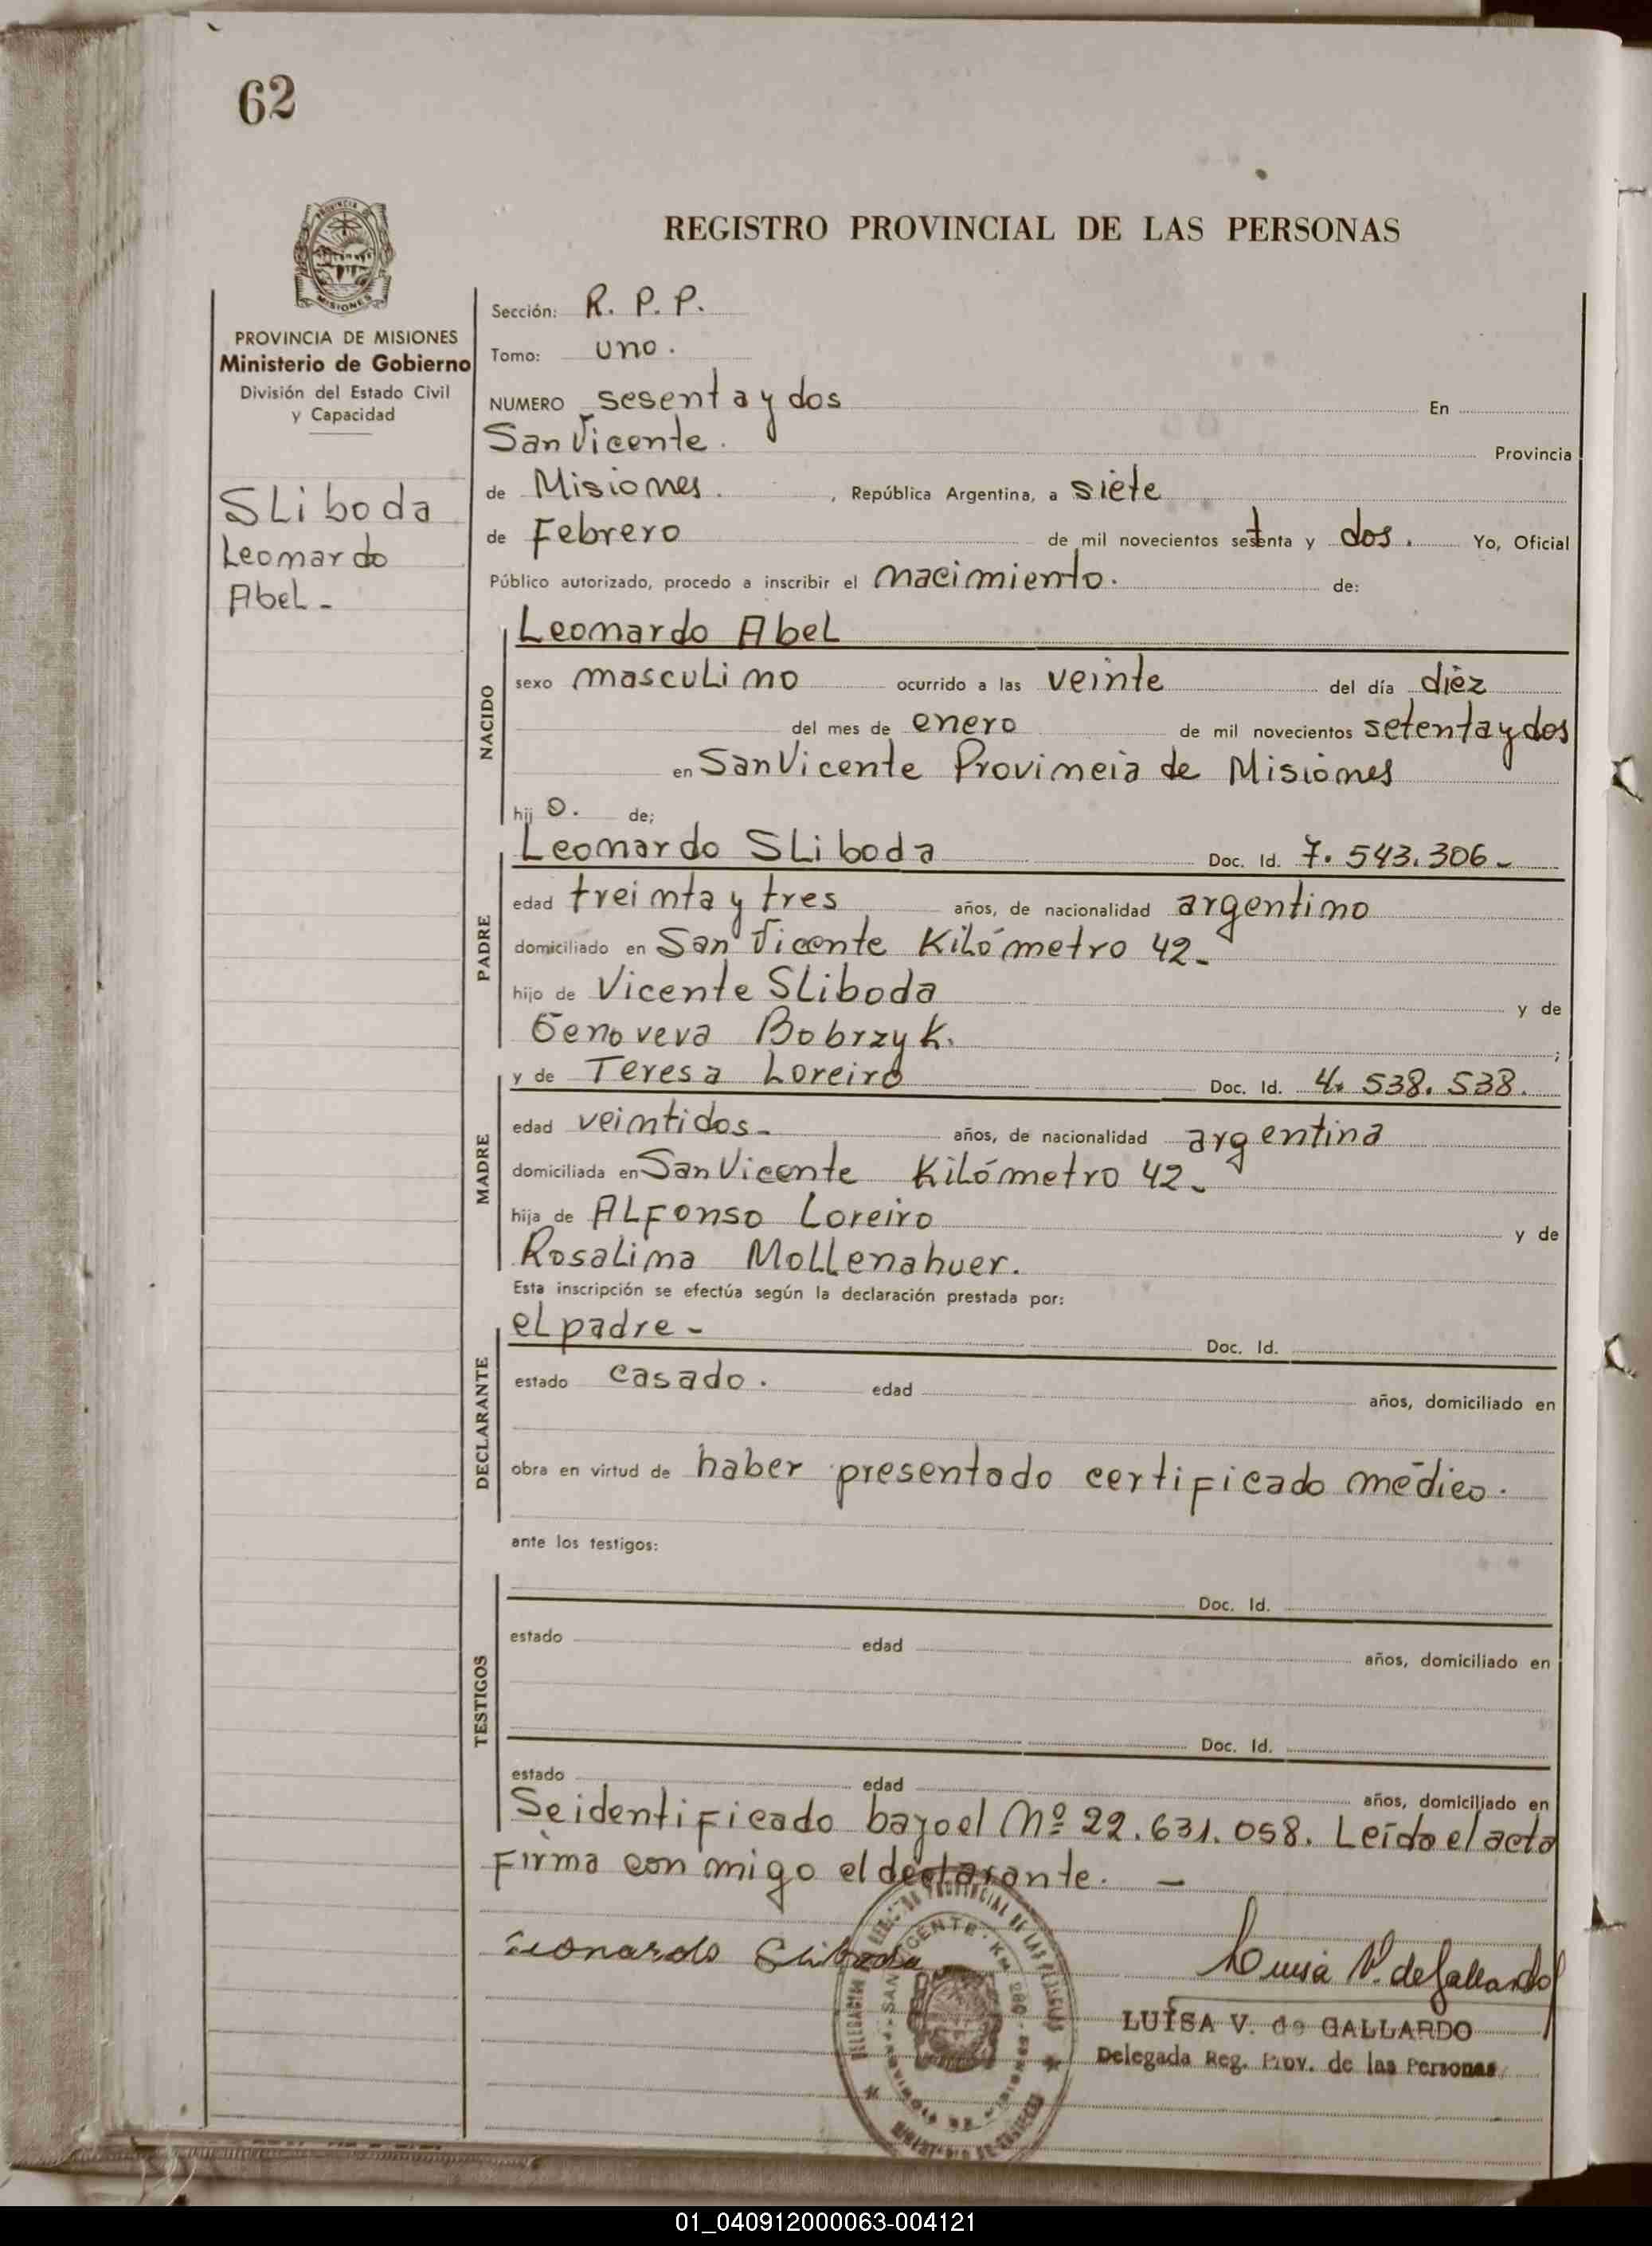 62
PROVINCIA DE
MISIONES
REGISTRO PROVINCIAL DE LAS PERSONAS
PROVINCIA DE MISIONES
Ministerio de Gobierno
División del Estado Civil
y Capacidad
SLiboda
Leonardo
Abel-
Sección: R. P. P.
Tomo: uno.
NUMERO sesenta y dos En
San Vicente. Provincia
de Misiones. , República Argentina, a siete
de Febrero de mil novecientos setenta y dos. Yo, Oficial
Público autorizado, procedo a inscribir el nacimiento. de:
NACIDO
Leonardo Abel
sexo masculino ocurrido a las veinte del día diéz
del mes de enero de mil novecientos setenta y dos
en San Vicente Provincia de Misiones
hijo. de;
PADRE
Leonardo SLiboda Doc. Id. 7.543.306-
edad treinta y tres años, de nacionalidad argentino
domiciliado en San Vicente Kilómetro 42-
hijo de Vicente SLiboda y de
Genoveva Bobrzyk. ;
MADRE
y de Teresa Loreiro Doc. Id. 4.538.538.
edad veintidos- años, de nacionalidad argentina
domiciliada en San Vicente Kilómetro 42-
hija de ALFonso Loreiro y de
Rosalina Mollenahuer.
Esta inscripción se efectúa según la declaración prestada por:
DECLARANTE
el padre- Doc. Id.
estado casado. edad años, domiciliado en
obra en virtud de haber presentado certificado médico.
ante los testigos:
TESTIGOS
Doc. Id.
estado edad años, domiciliado en
Doc. Id.
estado edad años, domiciliado en
Se identificado bajo el Nº 22.631.058. Leído el acta
Firma con migo el declarante. —
Leonardo Sliboda
Luisa V. de Gallardo
LUISA V. de GALLARDO
Delegada Reg. Prov. de las Personas
01_040912000063-004121